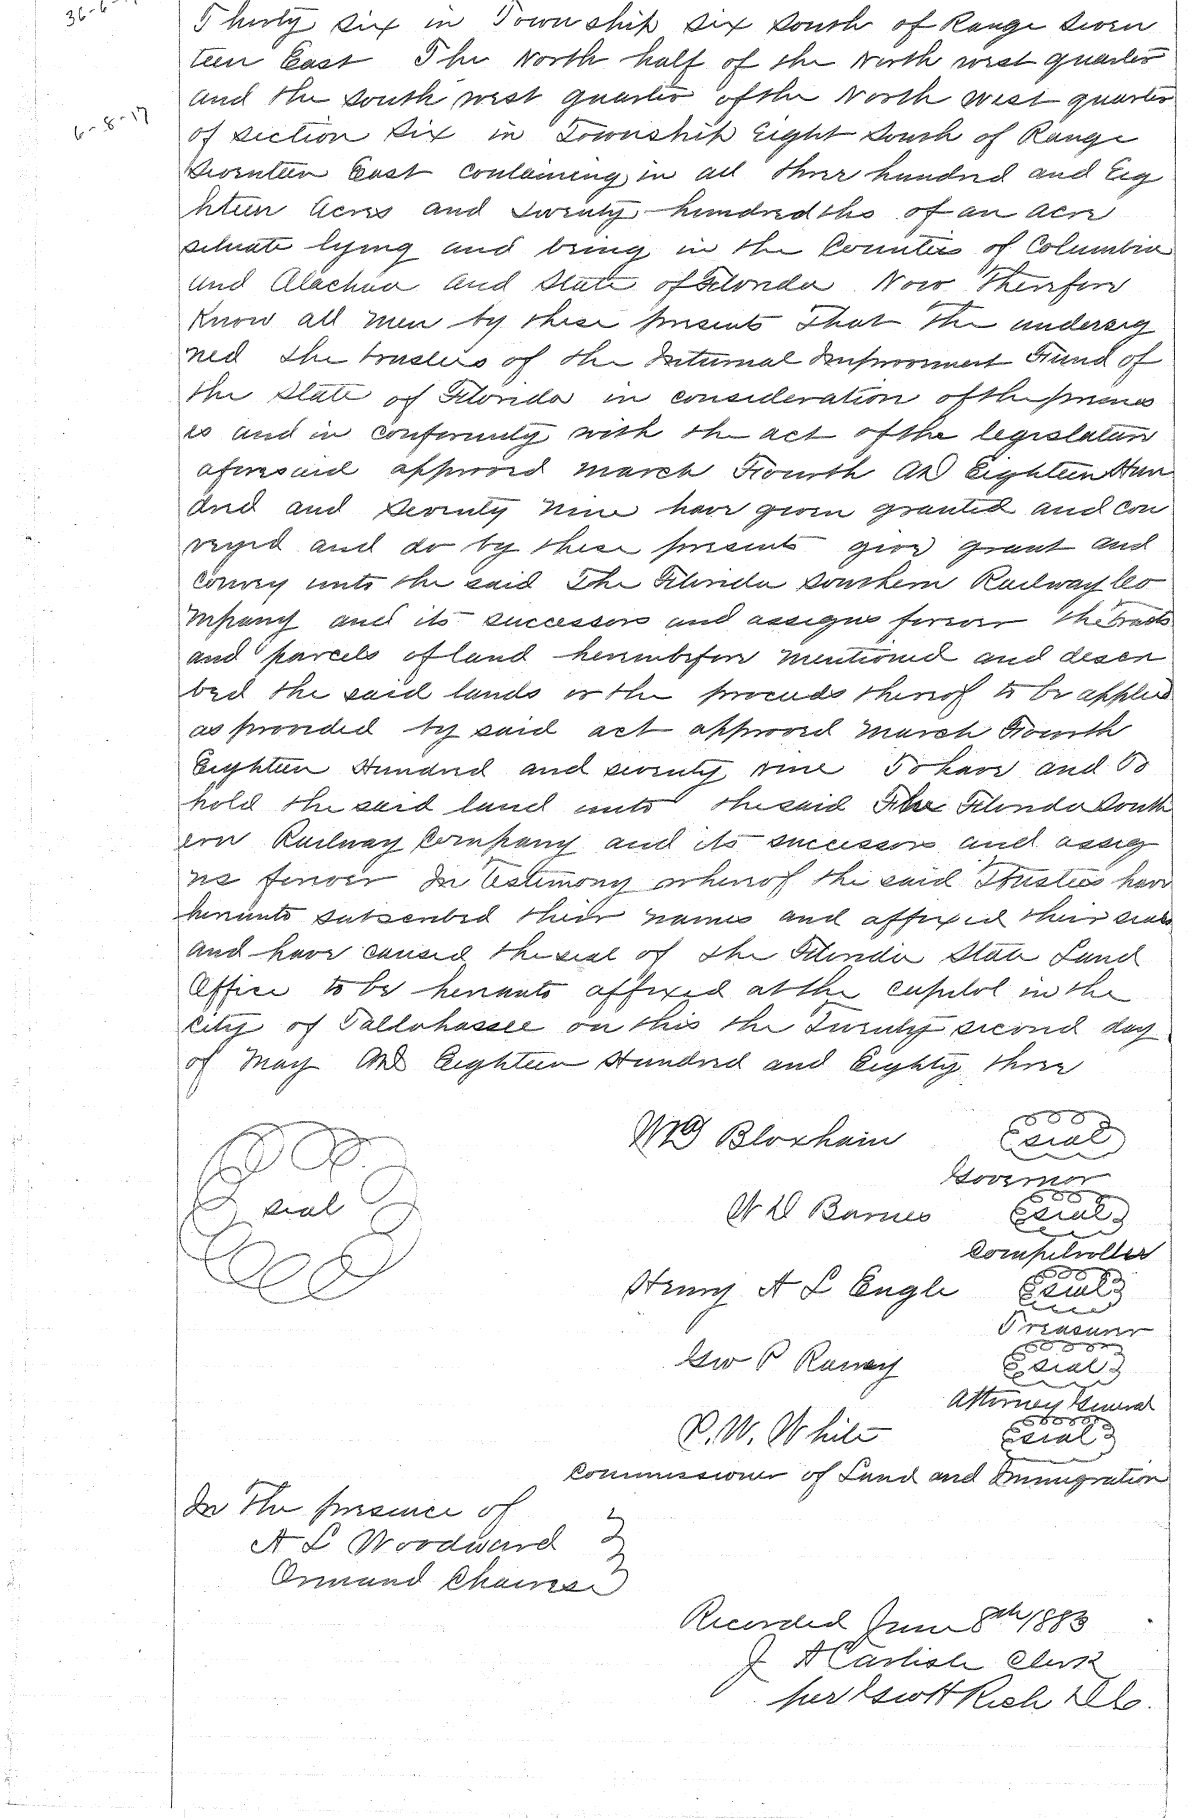 36-6-17
Thirty six in Township six south of Range Seven
teen East The North half of the North west quarter
6-8-17
and the south west quarter of the North West quarter
of section Six in Township Eight South of Range
Seventeen East containing in all three hundred and Eig
hteen Acres and twenty-hundredths of an acre
situate lying and being in the Counties of Columbia
and Alachua and State of Florida Now Therefore
Know all men by these presents That the undersig
ned the trustees of the Internal Improvement Fund of
the State of Florida in consideration of the premis
es and in conformity with the act of the legislature
aforesaid approved March Fourth AD Eighteen Hun
dred and Seventy Nine have given granted and con
veyed and do by these presents give grant and
Convey unto the said The Florida Southern Railway Co
mpany and its successors and assigns forever the Tracts
and parcels of land hereinbefore mentioned and descri
bed the said lands or the proceeds thereof to be applied
as provided by said act approved March Fourth
Eighteen Hundred and seventy nine To have and To
hold the said land unto the said The Florida South
ern Railway Company and its successors and assig
ns forever In Testimony whereof the said Trustees have
hereunto subscribed their names and affixed their seals
and have caused the seal of the Florida State Land
Office to be hereunto affixed at the capitol in the
City of Tallahassee on this the Twenty second day
of May AD Eighteen Hundred and Eighty three
WD Bloxham seal
Governor
seal
W D Barnes seal
Comptroller
Henry A L Engle seal
Treasurer
Geo P Raney seal
Attorney General
P. W. White seal
Commissioner of Land and Immigration
In The presence of
A L Woodward
Ormand Chairese
Recorded June 8th 1883
J A Carlisle Clerk
per Geo H Rich D C.